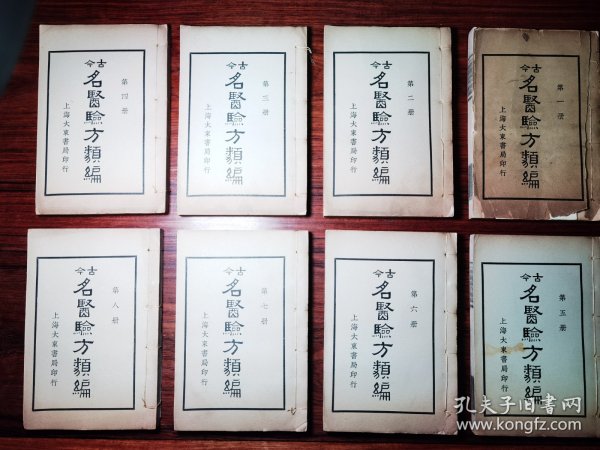 古今
名醫驗方類編
第一册
古今
名醫驗方類編
第二册
上海大東書局印行
古今
名醫驗方類編
第三册
上海大東書局印行
古今
名醫驗方類編
第四册
上海大東書局印行
古今
名醫驗方類編
第五册
上海大東書局印行
古今
名醫驗方類編
第六册
上海大東書局印行
古今
名醫驗方類編
第七册
上海大東書局印行
古今
名醫驗方類編
第八册
上海大東書局印行
上海大東書局印行
孔夫子旧書网
www.kongfz.com